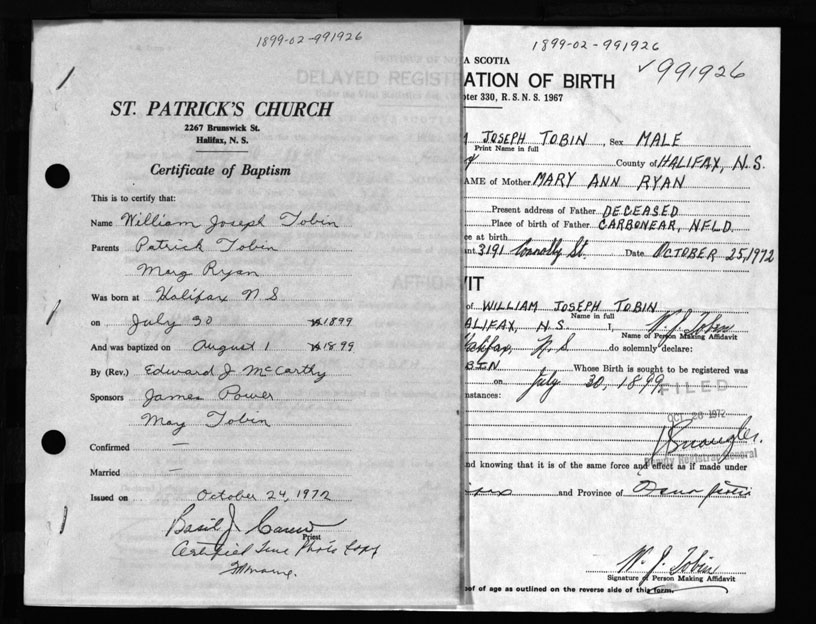 1899-02-991926
ST. PATRICK'S CHURCH
2267 Brunswick St.
Halifax, N. S.
Certificate of Baptism
This is to certify that:
Name William Joseph Tobin
Parents Patrick Tobin
Mary Ryan
Was born at Halifax N S
on July 30 1899
And was baptized on August 1 1899
By (Rev.) Edward J McCarthy
Sponsors James Power
May Tobin
Confirmed —
Married —
Issued on October 24, 1972
Basil J.
Priest
Certified True Photo Copy
1899-02-991926
A SCOTIA
✓991926
ATION OF BIRTH
pter 330, R. S. N. S. 1967
JOSEPH TOBIN, Sex MALE
Print Name in full
County of HALIFAX, N.S.
AME of Mother MARY ANN RYAN
Present address of Father DECEASED
Place of birth of Father CARBONEAR, NFLD.
ce at birth
nt 3191 Connolly St. Date OCTOBER 25, 1972
VIT
of WILLIAM JOSEPH TOBIN
Name in full
ALIFAX, N.S. I, W. J. Tobin
Name of Person Making Affidavit
Halifax, N. S do solemnly declare:
BIN Whose Birth is sought to be registered was
on July 30, 1899
FILED
nstances:
OCT 26 1972
Deputy Registrar General
nd knowing that it is of the same force and effect as if made under
and Province of Nova Scotia
W. J. Tobin
Signature of Person Making Affidavit
oof of age as outlined on the reverse side of this form.